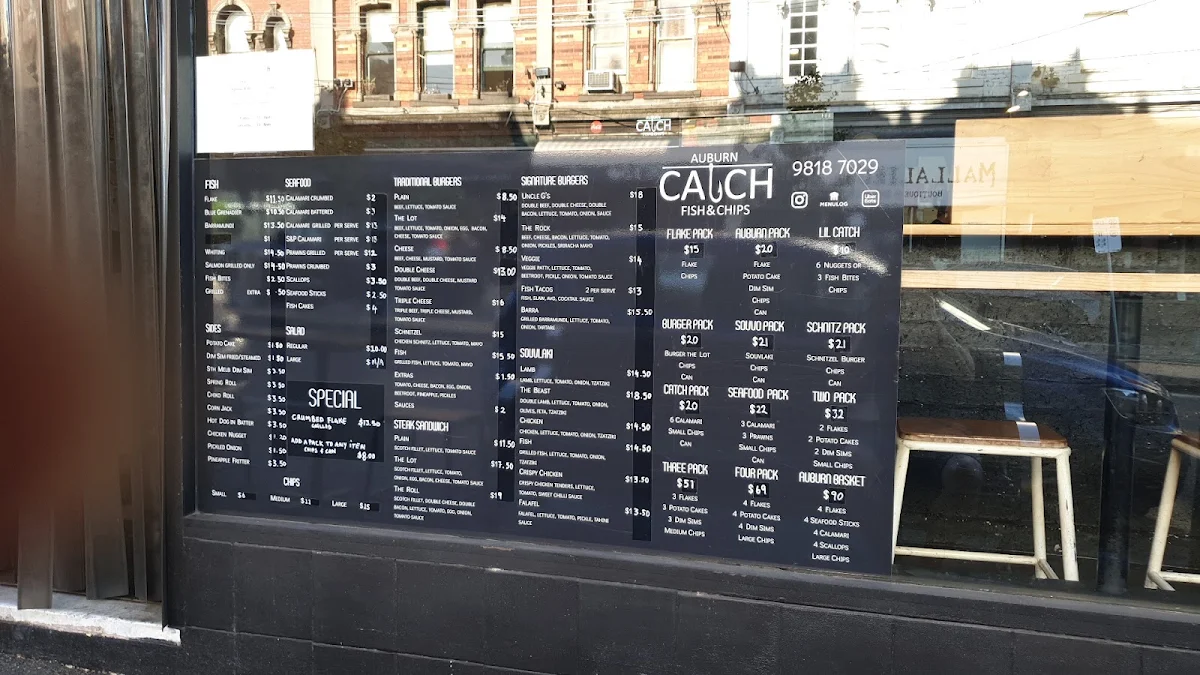 AUBURN
CATCH
FISH & CHIPS
9818 7029
MENULOG
Uber Eats
CATCH
FISH
FLAKE $11.50
BLUE GRENADIER $10.50
BARRAMUNDI $13.50
WHITING $14.50
SALMON GRILLED ONLY $14.50
FISH BITES $2.50
GRILLED EXTRA
SIDES
POTATO CAKE
DIM SIM FRIED/STEAMED
STH MELB DIM SIM
SPRING ROLL $3.50
CHIKO ROLL $3.50
CORN JACK $3.50
HOT DOG IN BATTER $3.50
CHICKEN NUGGET
PICKLED ONION $1.50
PINEAPPLE FRITTER $3.50
SEAFOOD
CALAMARI CRUMBED $2
CALAMARI BATTERED
CALAMARI GRILLED PER SERVE $13
S&P CALAMARI PER SERVE $13
PRAWNS GRILLED PER SERVE $12
PRAWNS CRUMBED $3
SCALLOPS $3.50
SEAFOOD STICKS $2.50
FISH CAKES $4
SALAD
REGULAR
LARGE
SPECIAL
CRUMBED FLAKE $12.50
GRILLED
ADD A PACK TO ANY ITEM
CHIPS & CAN $8.00
CHIPS
SMALL $6 MEDIUM LARGE $15
TRADITIONAL BURGERS
PLAIN $8.50
BEEF, LETTUCE, TOMATO SAUCE
THE LOT $14
BEEF, LETTUCE, TOMATO, ONION, EGG, BACON,
CHEESE, TOMATO SAUCE
CHEESE $8.50
BEEF, CHEESE, MUSTARD, TOMATO SAUCE
DOUBLE CHEESE $13.00
DOUBLE BEEF, DOUBLE CHEESE, MUSTARD
TOMATO SAUCE
TRIPLE CHEESE $16
TRIPLE BEEF, TRIPLE CHEESE, MUSTARD,
TOMATO SAUCE
SCHNITZEL $15
CHICKEN SCHNITZ, LETTUCE, TOMATO, MAYO
FISH $15.50
GRILLED FISH, LETTUCE, TOMATO, MAYO
EXTRAS $1.50
TOMATO, CHEESE, BACON, EGG, ONION,
BEETROOT, PINEAPPLE, PICKLES
SAUCES $2
STEAK SANDWICH
PLAIN $11.50
SCOTCH FILLET, LETTUCE, TOMATO SAUCE
THE LOT $17.50
SCOTCH FILLET, LETTUCE, TOMATO,
ONION, EGG, BACON, CHEESE, TOMATO SAUCE
THE ROLL $19
SCOTCH FILLET, DOUBLE CHEESE, DOUBLE
BACON, LETTUCE, TOMATO, EGG, ONION,
TOMATO SAUCE
SIGNATURE BURGERS
UNCLE G'S $18
DOUBLE BEEF, DOUBLE CHEESE, DOUBLE
BACON, LETTUCE, TOMATO, ONION, SAUCE
THE ROCK $15
BEEF, CHEESE, BACON, LETTUCE, TOMATO,
ONION, PICKLES, SRIRACHA MAYO
VEGGIE $14
VEGGIE PATTY, LETTUCE, TOMATO,
BEETROOT, PICKLE, ONION, TOMATO SAUCE
FISH TACOS 2 PER SERVE $13
FISH, SLAW, AVO, COCKTAIL SAUCE
BARRA $15.50
GRILLED BARRAMUNDI, LETTUCE, TOMATO,
ONION, TARTARE
SOUVLAKI
LAMB $14.50
LAMB, LETTUCE, TOMATO, ONION, TZATZIKI
THE BEAST $18.50
DOUBLE LAMB, LETTUCE, TOMATO, ONION,
OLIVES, FETA, TZATZIKI
CHICKEN $14.50
CHICKEN, LETTUCE, TOMATO, ONION, TZATZIKI
FISH $14.50
GRILLED FISH, LETTUCE, TOMATO, ONION,
TZATZIKI
CRISPY CHICKEN $13.50
CRISPY CHICKEN TENDERS, LETTUCE,
TOMATO, SWEET CHILLI SAUCE
FALAFEL $13.50
FALAFEL, LETTUCE, TOMATO, PICKLE, TAHINI
SAUCE
FLAKE PACK
$15
FLAKE
CHIPS
AUBURN PACK
$20
FLAKE
POTATO CAKE
DIM SIM
CHIPS
CAN
LIL CATCH
$10
6 NUGGETS OR
3 FISH BITES
CHIPS
BURGER PACK
$20
BURGER THE LOT
CHIPS
CAN
SOUVO PACK
$21
SOUVLAKI
CHIPS
CAN
SCHNITZ PACK
$21
SCHNITZEL BURGER
CHIPS
CAN
CATCH PACK
$20
6 CALAMARI
SMALL CHIPS
CAN
SEAFOOD PACK
$22
3 CALAMARI
3 PRAWNS
SMALL CHIPS
CAN
TWO PACK
$32
2 FLAKES
2 POTATO CAKES
2 DIM SIMS
SMALL CHIPS
THREE PACK
$51
3 FLAKES
3 POTATO CAKES
3 DIM SIMS
MEDIUM CHIPS
FOUR PACK
$69
4 FLAKES
4 POTATO CAKES
4 DIM SIMS
LARGE CHIPS
AUBURN BASKET
$90
4 FLAKES
4 SEAFOOD STICKS
4 CALAMARI
4 SCALLOPS
LARGE CHIPS